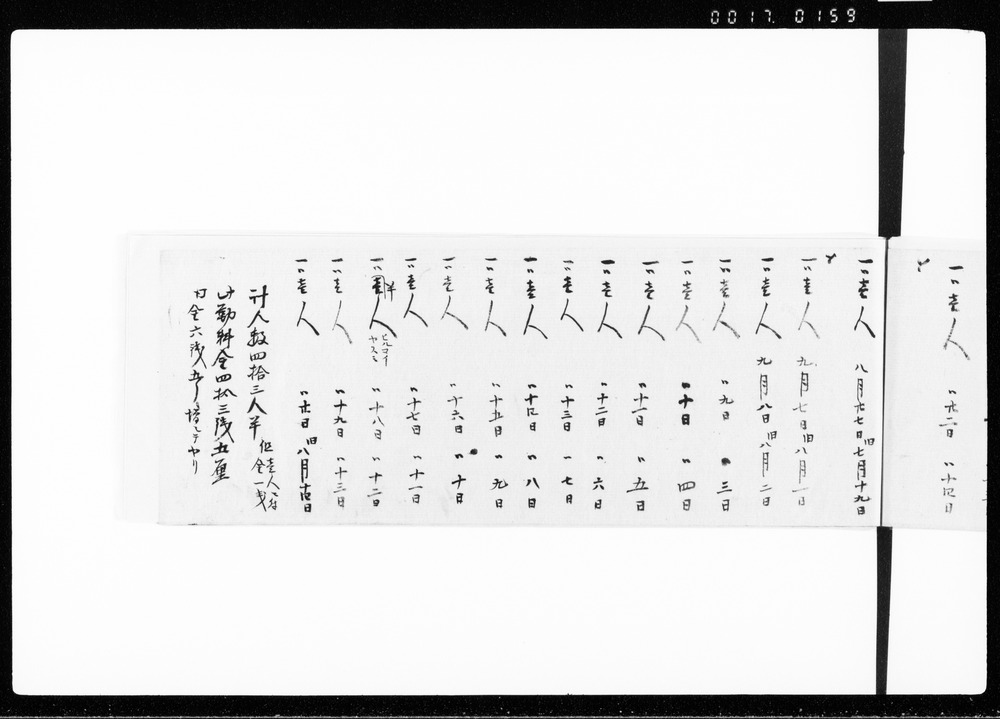 0017.0159
一〃壱人 〃廿二日 〃十四日
一〃壱人 八月廿七日旧七月十九日
一〃壱人 九月七日旧八月一日
一〃壱人 九月八日旧八月二日
一〃壱人 〃九日 〃三日
一〃壱人 〃十日 〃四日
一〃壱人 〃十一日 〃五日
一〃壱人 〃十二日 〃六日
一〃壱人 〃十三日 〃七日
一〃壱人 〃十四日 〃八日
一〃壱人 〃十五日 〃九日
一〃壱人 〃十六日 〃十日
一〃壱人 〃十七日 〃十一日
一〃半人 ヒルマイヤスミ 〃十八日 〃十二日
一〃壱人 〃十九日 〃十三日
一〃壱人 〃廿日 旧八月十四日
計人数四拾三人半 但壱人ニ付金一
此勤料金四拾三銭五厘
内金六銭五り増シテヤリ